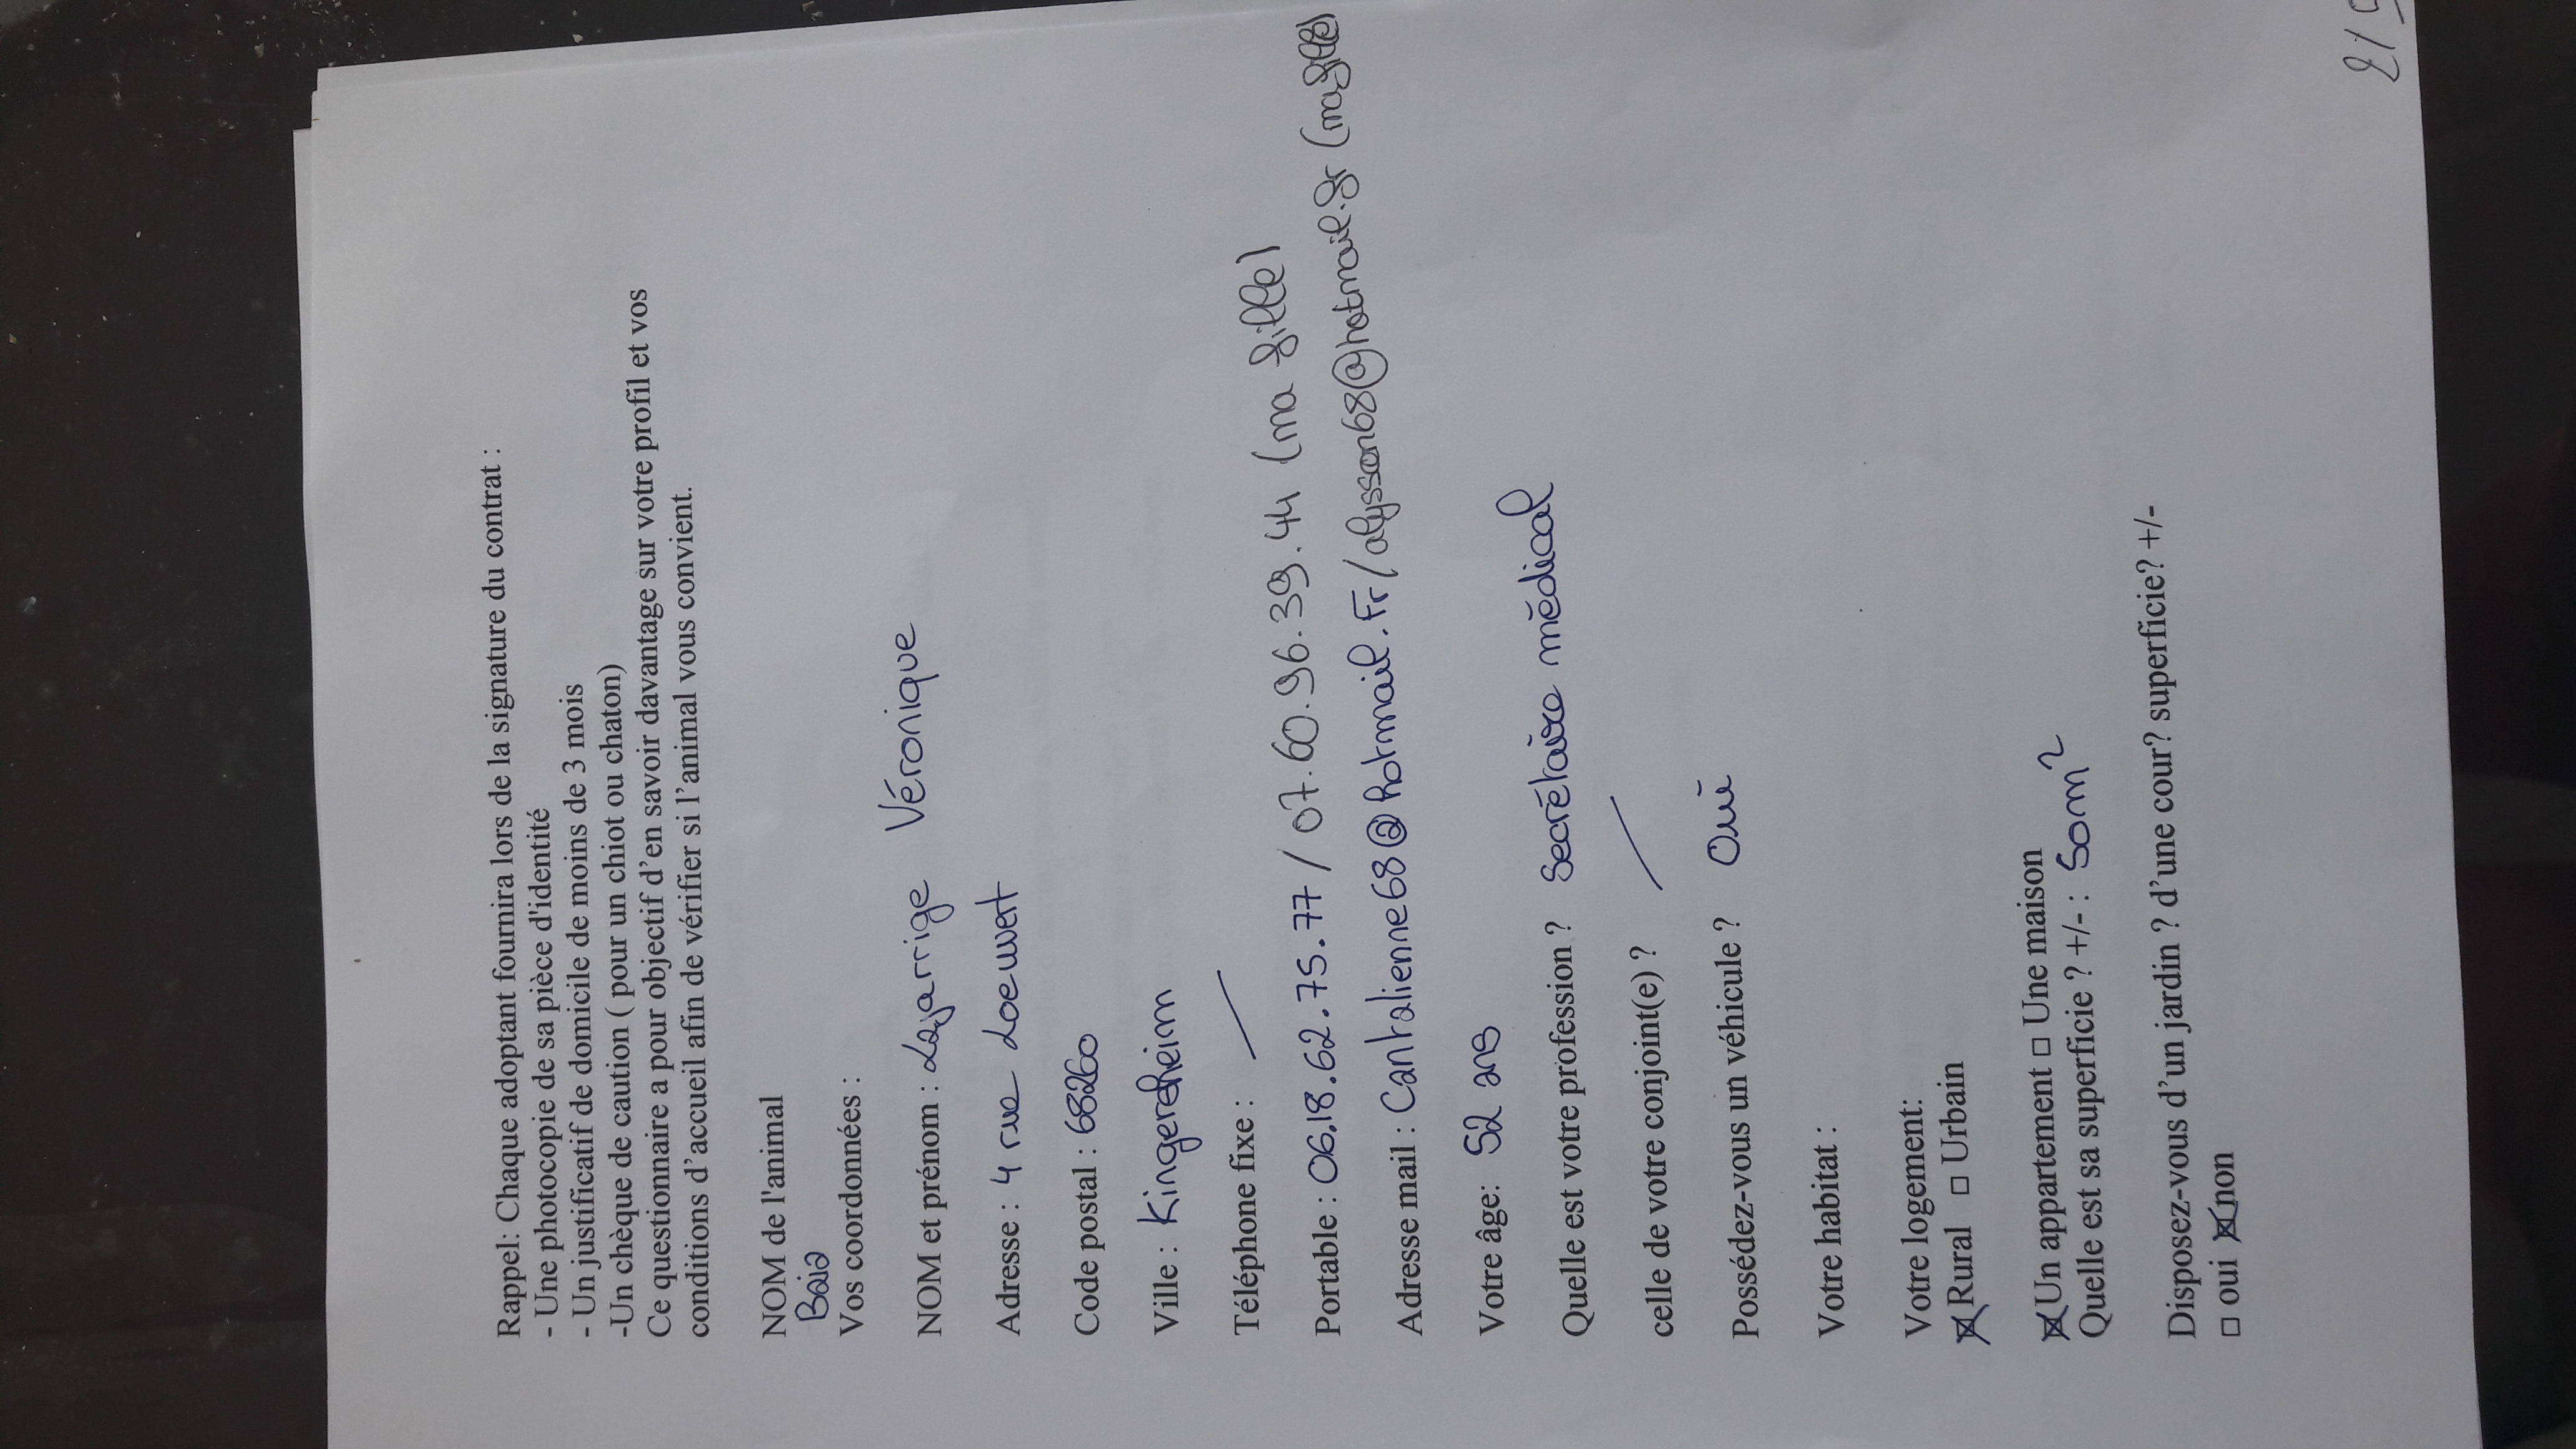 Rappel: Chaque adoptant fournira lors de la signature du contrat :
- Une photocopie de sa pièce d'identité
- Un justificatif de domicile de moins de 3 mois
-Un chèque de caution ( pour un chiot ou chaton)
Ce questionnaire a pour objectif d'en savoir davantage sur votre profil et vos
conditions d'accueil afin de vérifier si l'animal vous convient.
NOM de l'animal
Baia
Vos coordonnées :
NOM et prénom : Lajarrige Véronique
Adresse : 4 rue Loewert
Code postal : 68260
Ville : Kingersheim
Téléphone fixe :
Portable : 06.18.62.75.77 / 07.60.96.39.44 (ma fille)
Adresse mail : Cantalienne68@hotmail.Fr / alysson68@hotmail.fr (ma fille)
Votre âge: 52 ans
Quelle est votre profession ? Secrétaire médical
celle de votre conjoint(e) ?
Possédez-vous un véhicule ? Oui
Votre habitat :
Votre logement:
☒ Rural □ Urbain
☒ Un appartement □ Une maison
Quelle est sa superficie ? +/- : 50m²
Disposez-vous d'un jardin ? d'une cour? superficie? +/-
□ oui ☒ non